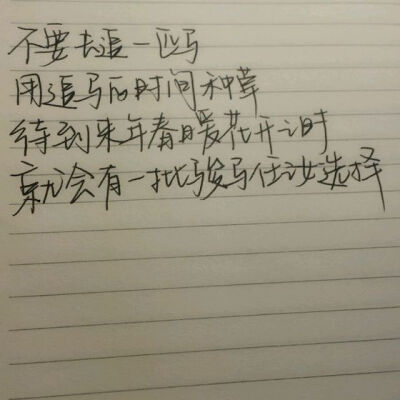 不要去追一匹马
用追马的时间种草
待到来年春暖花开之时
就会有一批骏马任汝选择